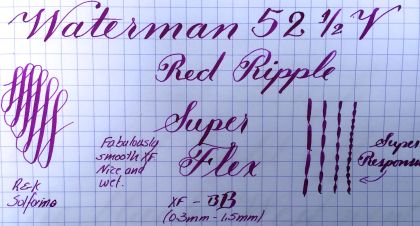 Waterman 52 ½ V
Red Ripple
Super
Flex
Fabulously
smooth XF
Nice and
wet.
Super
Responsive
R&K
Solferino
XF - BB
(0.3mm - 1.5mm)